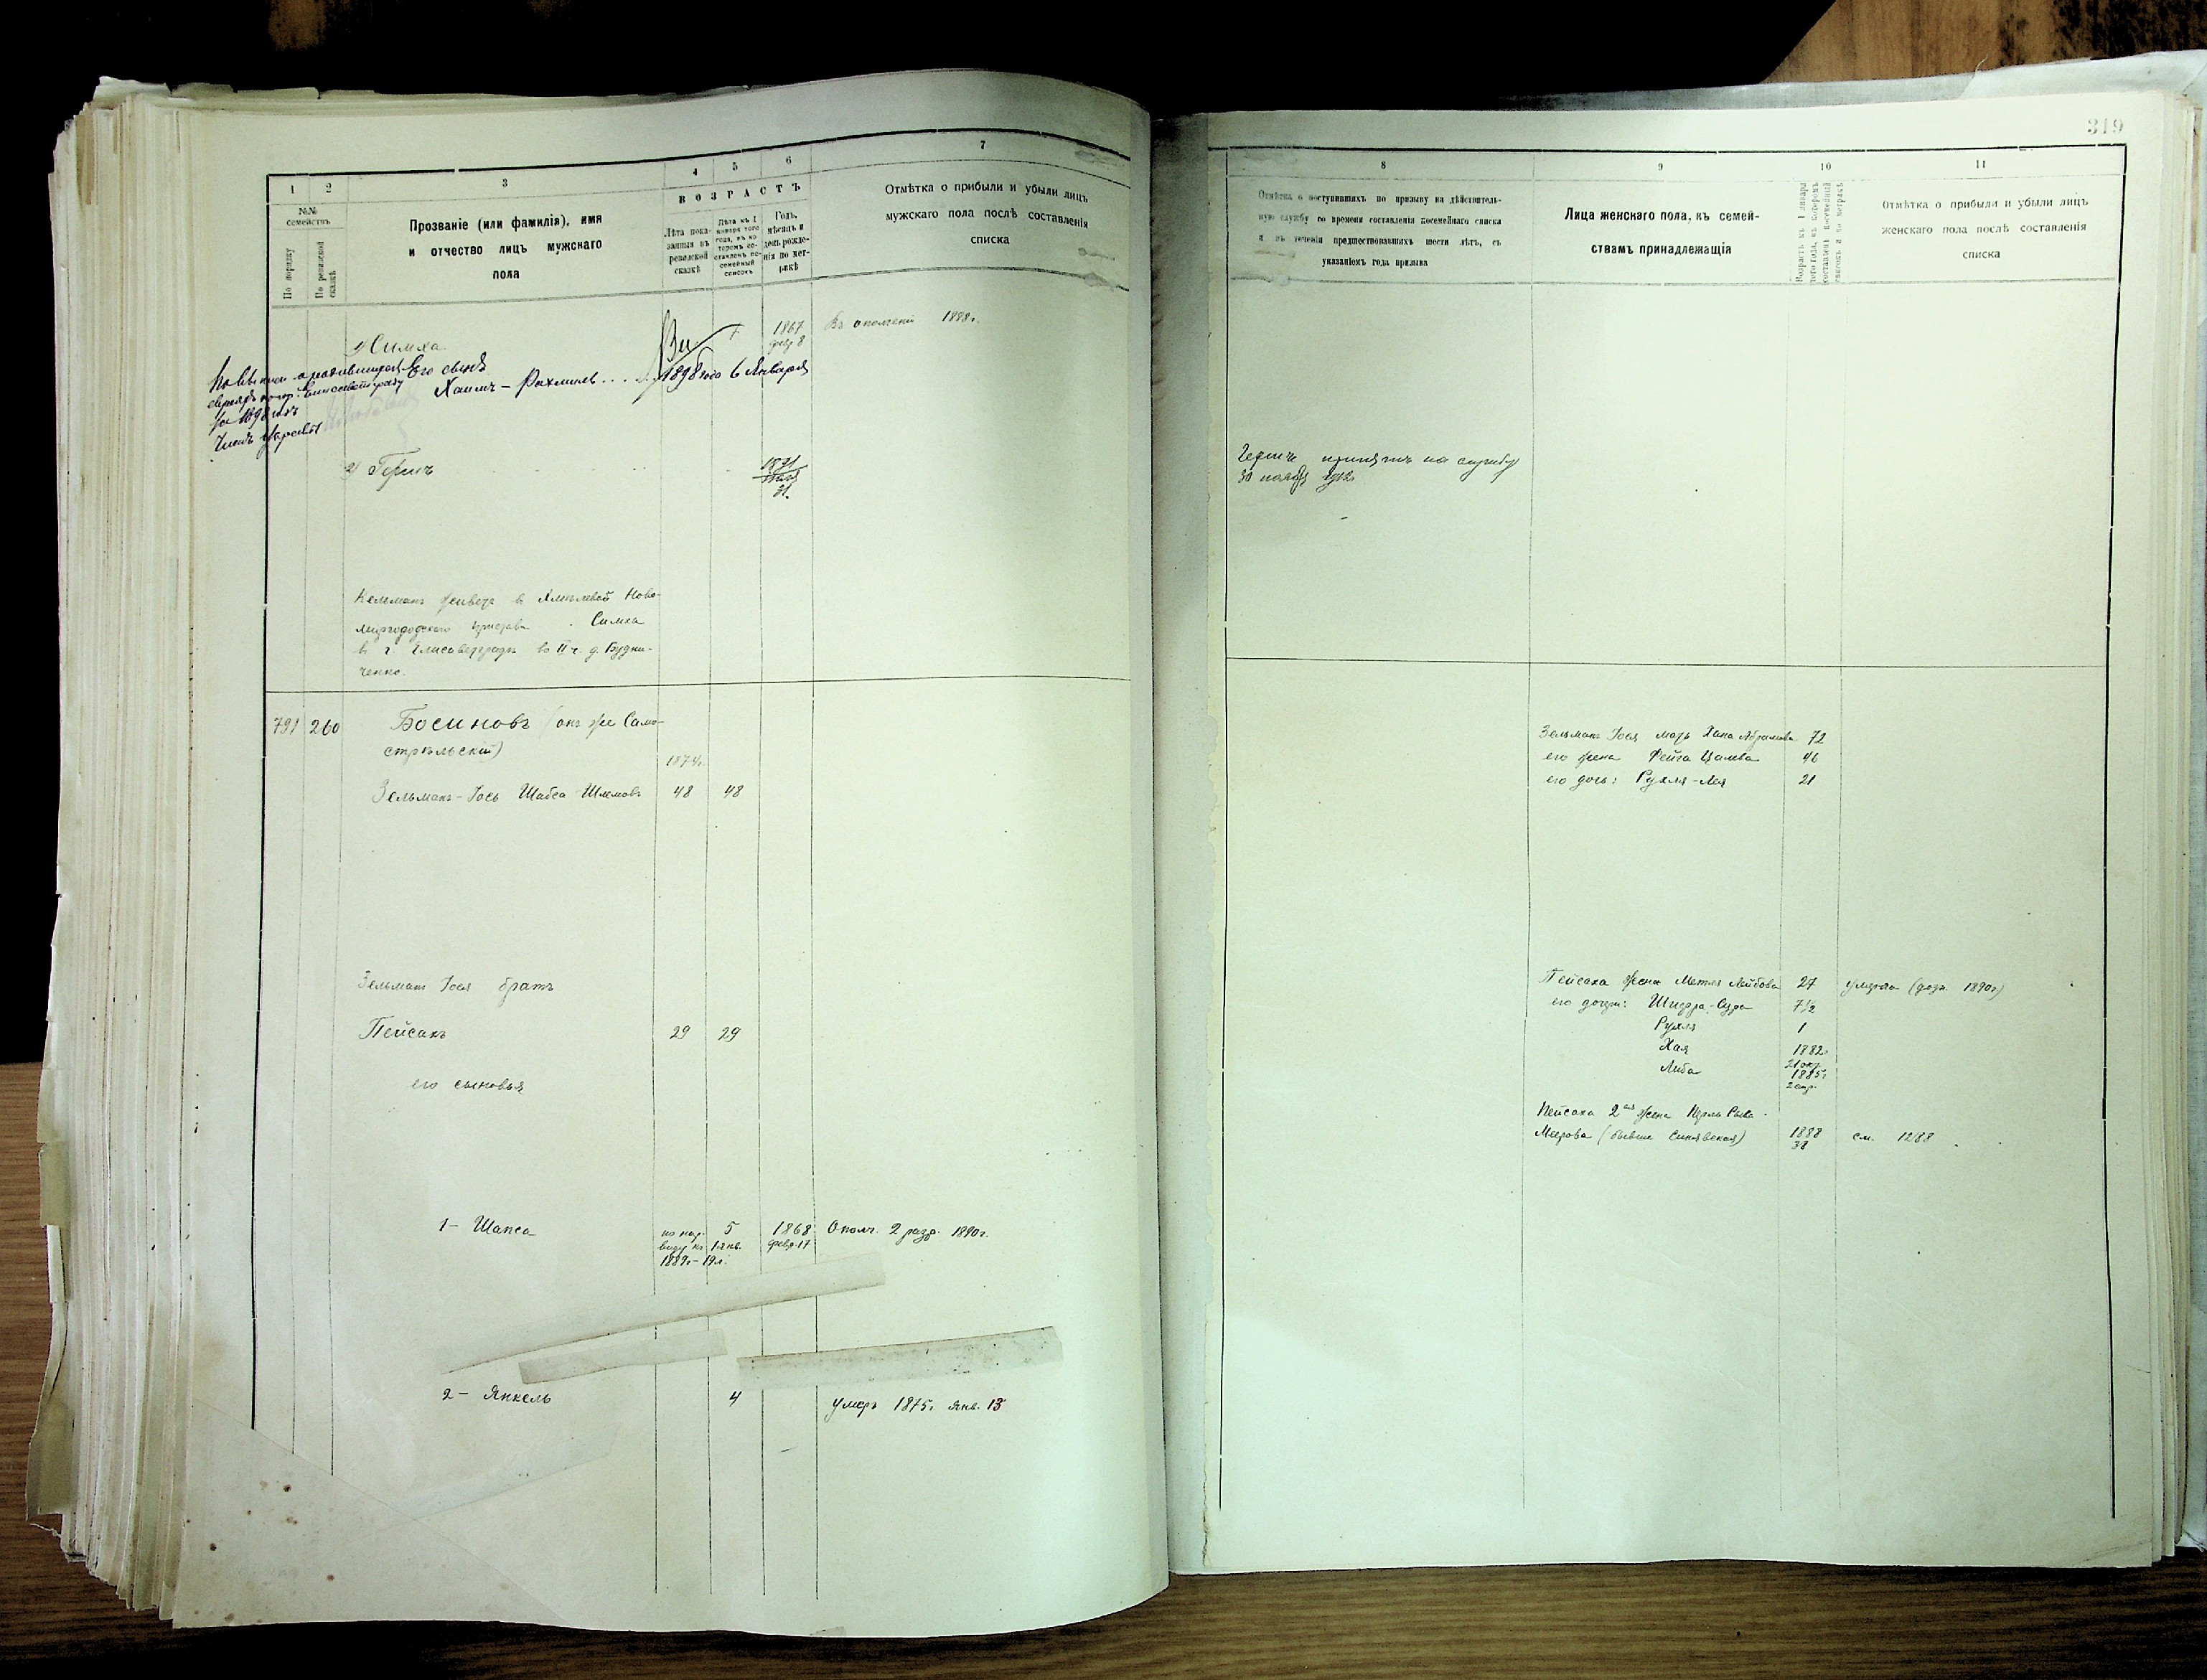 319
1 2 3 4 5 6 7
№№ семействъ
По порядку
По ревизской сказкѣ
Прозваніе (или фамилія), имя
и отчество лицъ мужскаго
пола
ВОЗРАСТЪ
Лѣта пока-
занныя въ
ревизской
сказкѣ
Лѣта къ 1
января того
года, въ ко-
торомъ со-
ставленъ по-
семейный
списокъ
Годъ,
мѣсяцъ и
день рожде-
нія по мет-
рикѣ
Отмѣтка о прибыли и убыли лицъ
мужскаго пола послѣ составленія
списка
1) Симха
1867
февр 8
Въ ополченіи 1888г.
Его сынъ
Хаимъ-Рахмиль . . . 1898 года 6 Января
за 1898 годъ
2) Гершъ
1871
31
Кельманъ живетъ в Хмелевой Ново-
миргородскаго Симха
в г. Елисаветградѣ во II ч. д. Будни-
ченко.
791 260 Босиновъ (онъ же Само-
стрѣльскій)
1874г.
Зельманъ-Іось Шабса-Шлемовъ 48 48
Зельманъ Іося братъ
Пейсахъ 29 29
его сыновья
1 - Шапса 5 1868 Ополч. 2 разр. 1890г.
виду къ 1 янв. февр. 17
1889г - 19 л.
2 - Янкель 4 умеръ 1875г янв. 13
8 9 10 11
Отмѣтка о поступившихъ по призыву на дѣйствитель-
ную службу со времени составленія посемейнаго списка
и въ теченіи предшествовавшихъ шести лѣтъ, съ
указаніемъ года призыва
Лица женскаго пола, къ семей-
ствамъ принадлежащія
Возрастъ къ 1 января
того года, въ которомъ
составленъ посемейный
списокъ и по метрикѣ
Отмѣтка о прибыли и убыли лицъ
женскаго пола послѣ составленія
списка
Гершъ принятъ на службу
30 ноября
Зельмана Іося мать Хана Абрамова 72
его жена Фейга Цалева 46
его дочь: Рухля-Лея 21
Пейсаха жена Метля Лейбова 27 умерла (дозн. 1890г.)
его дочери: Шифра-Сура 7½
Рухля 1
Хая 1882г
21 окт.
Либа 1885г
2 апр.
Пейсаха 2ая жена Перль Рыва
Меерова (бывша Синявская) 1888 см. 1288
38